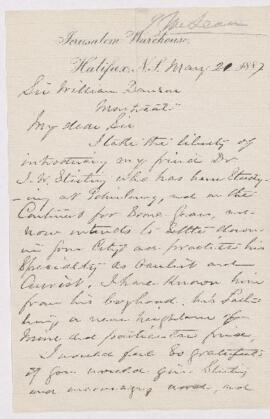 Jerusalem Warehouse,
Halifax, N.S. May 21 1887
Sir William Dawson
Montreal
My dear Sir
I take the liberty of
introducing my friend Dr.
J. W. Stirling who has been study-
ing at Edinburg, and on the
Continent for some years, and
now intends to settle down
in your City and practice his
Speciality as Oculist and
Aurist. I have known him
from his boyhood, his father
being a near neighbour of
mine and particular friend.
I would feel so grateful
if you would give Stirling
an encouraging word, and